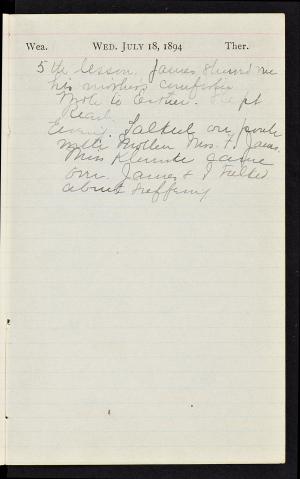 Wea. WED. JULY 18, 1894 Ther.
5th lesson. James showed me
his mother's
Note to Esther. Slept
Read.
Evening. Talked on porch
with Mother Mrs. F. James,
Miss came
over. James & I talked
about